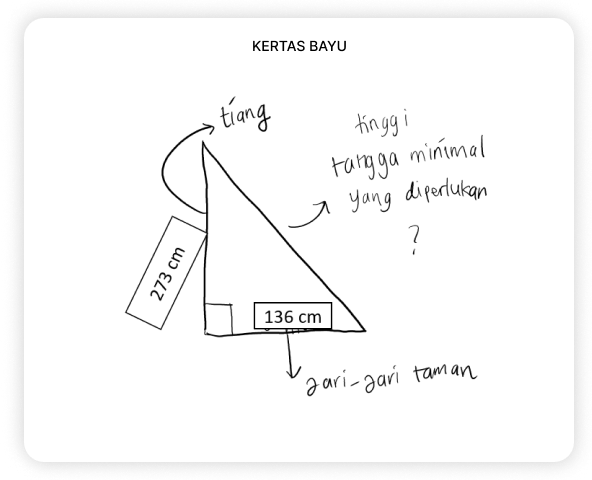 KERTAS BAYU
tiang
tinggi
tangga minimal
yang diperlukan
?
273 cm
136 cm
jari-jari taman